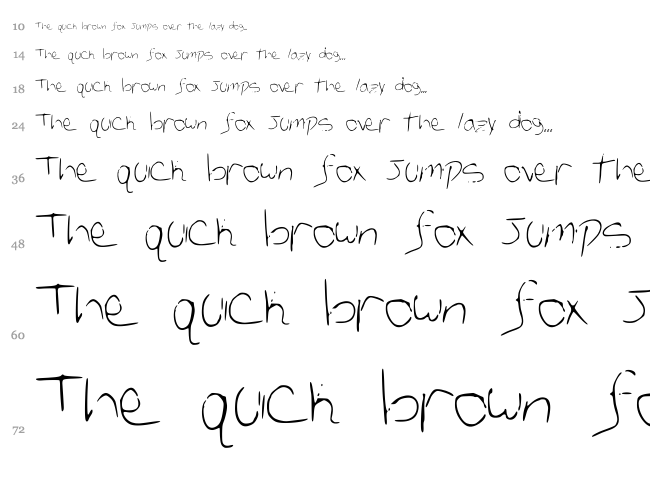 10 The quick brown fox jumps over the lazy dog...
14 The quick brown fox jumps over the lazy dog...
18 The quick brown fox jumps over the lazy dog...
24 The quick brown fox jumps over the lazy dog...
36 The quick brown fox jumps over the
48 The quick brown fox jumps
60 The quick brown fox j
72 The quick brown fo